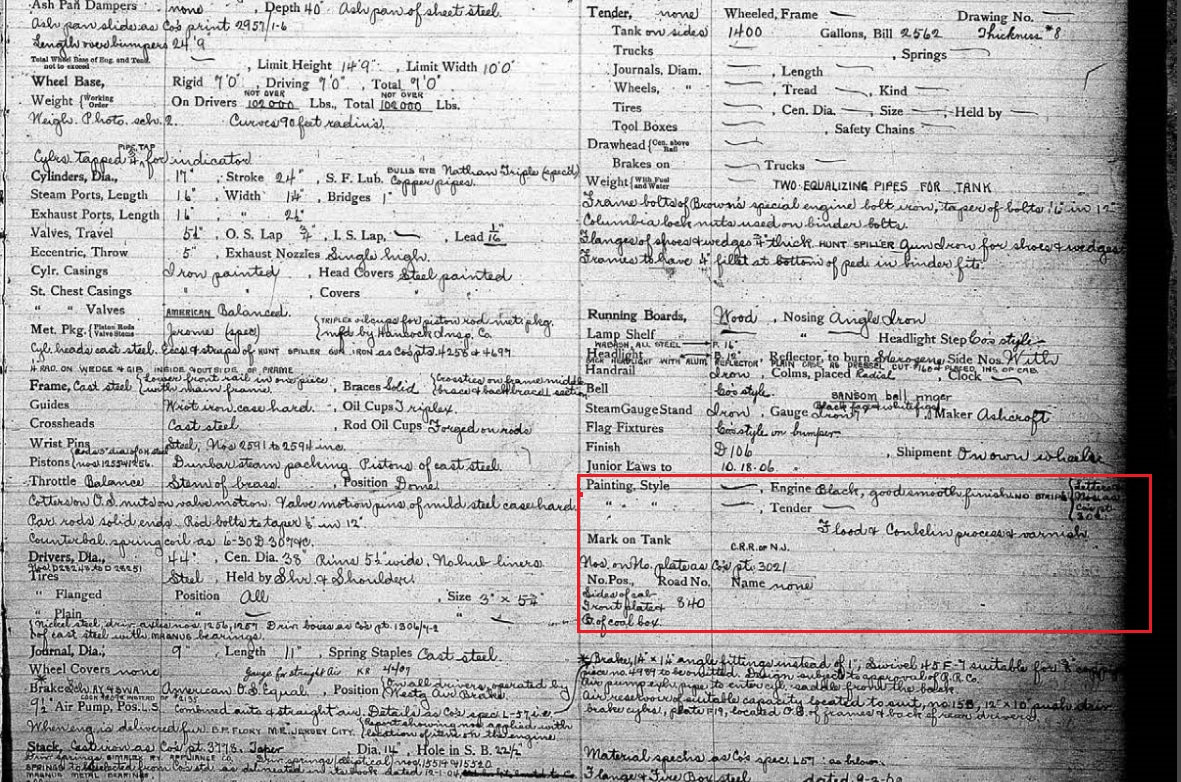 Ash Pan Dampers none , Depth 40" Ash pan of sheet steel.
Ash pan slide as Co's print 2957/1-6
Length over bumpers 24' 9"
Total Wheel Base of Eng. and Tend. not to exceed , Limit Height 14'9" , Limit Width 10'0"
Wheel Base, Rigid 9'0", Driving 9'0", Total 9'0"
Weight {Working Order On Drivers NOT OVER 102000 Lbs., Total NOT OVER 102000 Lbs.
Weigh. Photo. sch. 2. Curves 90 feet radius.
Cylrs tapped for indicator
Cylinders, Dia., 17" , Stroke 24" , S. F. Lub. BULLS EYE Nathan Triple (spec'l) Copper pipes.
Steam Ports, Length 16" , Width 1¼" , Bridges 1"
Exhaust Ports, Length 16" , " 2½"
Valves, Travel 5½" , O. S. Lap ¾" , I. S. Lap, , Lead 1/16"
Eccentric, Throw 5" , Exhaust Nozzles Single high
Cylr. Casings Iron painted , Head Covers Steel painted
St. Chest Casings " " , Covers
" " Valves AMERICAN Balanced.
Met. Pkg. {Piston Rods Valve Stems Jerome (spec) {TRIPLEX oil cups for piston rod met. pkg. mfd by Hancock Insp. Co.
Cyl. heads cast steel. Ecs & straps of HUNT SPILLER GUN IRON as Co's pts 4258 & 4697
4 RAD. ON WEDGE & GIB INSIDE & OUTSIDE OF FRAME
Frame, Cast steel {Lower front rail in one piece with main frame , Braces Solid {Crossties on frame middle brace & back braces section
Guides Wrot iron case hard. , Oil Cups Triplex.
Crossheads Cast steel. , Rod Oil Cups Forged on rods
Wrist Pins Steel, Nos 2591 to 2594 inc.
Pistons Dunbar steam packing Pistons of cast steel.
Throttle Balance Stem of brass. , Position Dome
Cotters on O.S. nuts of valve motion. Valve motion pins of mild steel case hard.
Par. rods solid ends. Rod bolts to taper ⅛" in 12".
Counterbal. spring coil as 6-30 D 307 & C.
Drivers, Dia., 44" , Cen. Dia. 38" Rims 5½" wide No hub liners
Tires Steel Held by Shr. & Shoulder
" Flanged Position All , Size 3" x 5¾"
" Plain "
{Nickel steel driv. axles nos 1256, 1257 Driv. boxes as Co's pt. 1306/4-2
of cast steel with MAGNUS bearings.
Journal, Dia., 9" , Length 11" , Spring Staples Cast steel.
Wheel Covers none
Brake American O.S. Equal. , Position {On all drivers, operated by Westg Air Brake
9½" Air Pump, Pos. L.S. Combined auto & straight air.
When eng. is delivered fur. B.P. FLORY M.E. JERSEY CITY.
Stack, Cast iron as Co's pt. 3773. Taper , Dia. 14" , Hole in S. B. 22½
Tender, none Wheeled, Frame Drawing No.
Tank on sides 1400 Gallons, Bill 2562 Thickness #8
Trucks , Springs
Journals, Diam. , Length
Wheels, " , Tread , Kind
Tires , Cen. Dia. , Size , Held by
Tool Boxes , Safety Chains
Drawhead {Cen. above Rail
Brakes on Trucks
Weight {With Fuel and Water TWO EQUALIZING PIPES FOR TANK
Frame bolts of Brown's special engine bolt iron, taper of bolts 1/16" in 12"
Columbia lock nuts used on binder bolts.
Flanges of shoes & wedges ¾" thick HUNT SPILLER Gun Iron for shoes & wedges
Frames to have ¼" fillet at bottom of ped. in binder fits.
Running Boards, Wood , Nosing Angle Iron
Lamp Shelf " Headlight Step Co's style
Headlight P. 12" , Reflector, to burn Kerosene, Side Nos. With
Handrail Iron , Colms, placed Radial , Clock
Bell Co's style SANSOM bell ringer
Steam Gauge Stand Iron , Gauge Iron Black face white figs , Maker Ashcroft
Flag Fixtures Co's style on bumper
Finish D 106 , Shipment On own wheels
Junior Laws to 10.18.06.
Painting, Style , Engine Black, good smooth finish NO STRIPE
" " , Tender
Flood & Conklin process & varnish
Mark on Tank C.R.R. OF N.J.
Nos. on No. plate as Co's pt. 3021
No. Pos., Road No. Name none
Sides of cab
Front plate & 840
B. of coal box.
* Brake, 14" x 1¼" angle fittings instead of 1", Swivel 45 F-7 suitable for
piece no. 4987 to be omitted. Design subject to approval of R.R. Co.
Air pump exh. pipe to enter cyl. saddle from the back
Air reservoirs of suitable capacity located to suit, no 15B, 12" x 10 push down
brake cylrs, plate F19, located O.S. of frames & back of rear drivers
Material specns as Co's spec. L57. as below.
Flange & Fire Box steel dated 9-2-02